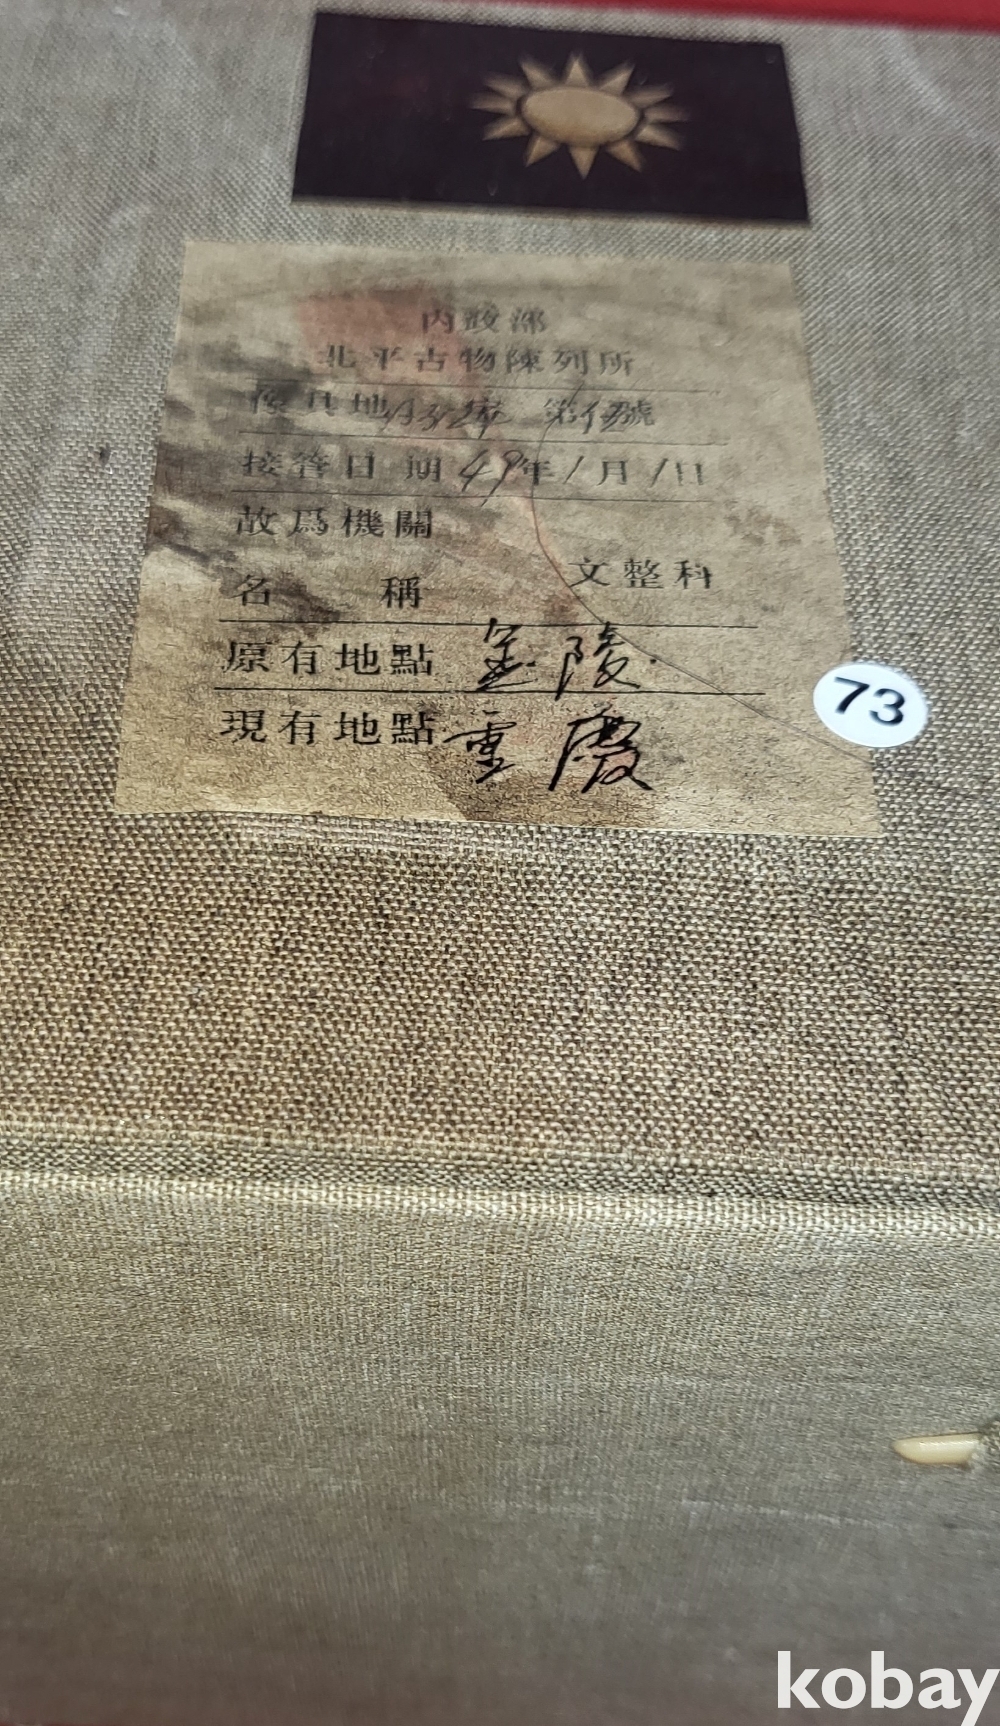 內政部
北平古物陳列所
地 第 號
接管日期 49年1月1日
故爲機關
文整科
名 稱
原有地點 金陵
現有地點 重慶
73
kobay